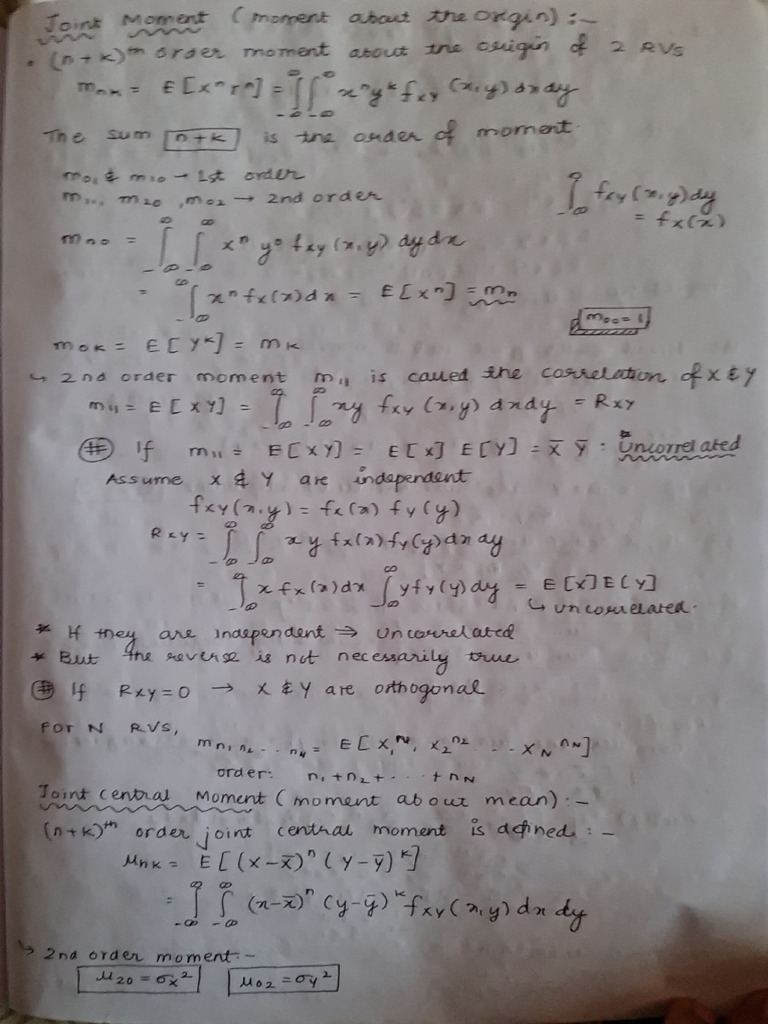 Joint Moment (moment about the origin) :-
• (n+k)th order moment about the origin of 2 RVS
mnk = E[XⁿYⁿ] = ∫-∞^∞ ∫-∞^∞ xⁿyᵏ fxy (x,y) dxdy
The sum n+k is the order of moment.
m01 & m10 → 1st order
m11, m20, m02 → 2nd order
∫-∞^∞ fxy(x,y)dy
= fx(x)
mno = ∫-∞^∞ ∫-∞^∞ xⁿ y⁰ fxy (x,y) dydx
= ∫-∞^∞ xⁿ fx(x)dx = E[xⁿ] = mn
m00=1
mok = E[Yᵏ] = mk
↳ 2nd order moment m11 is called the correlation of X & Y
m11 = E[XY] = ∫-∞^∞ ∫-∞^∞ xy fxy (x,y) dxdy = Rxy
# If m11 = E[XY] = E[X] E[Y] = X̄ Ȳ : * Uncorrelated
Assume X & Y are independent
fxy(x,y) = fx(x) fy(y)
Rxy = ∫-∞^∞ ∫-∞^∞ x y fx(x) fy(y)dx dy
= ∫-∞^∞ x fx(x)dx ∫-∞^∞ y fy(y)dy = E[X]E[Y]
↳ uncorrelated.
* If they are independent ⇒ uncorrelated
* But the reverse is not necessarily true
# If Rxy=0 → X & Y are orthogonal
FOR N RVS,
mn1 n2 ... nN = E[X1ᴺ¹, X2ⁿ² ... XNⁿᴺ]
order: n1+n2+...+nN
Joint central Moment (moment about mean) :-
(n+k)th order joint central moment is defined :-
μnk = E[(X-X̄)ⁿ (Y-Ȳ)ᵏ]
= ∫-∞^∞ ∫-∞^∞ (x-x̄)ⁿ (y-ȳ)ᵏ fxy(x,y) dx dy
↳ 2nd order moment:-
μ20 = σx² μ02 = σy²